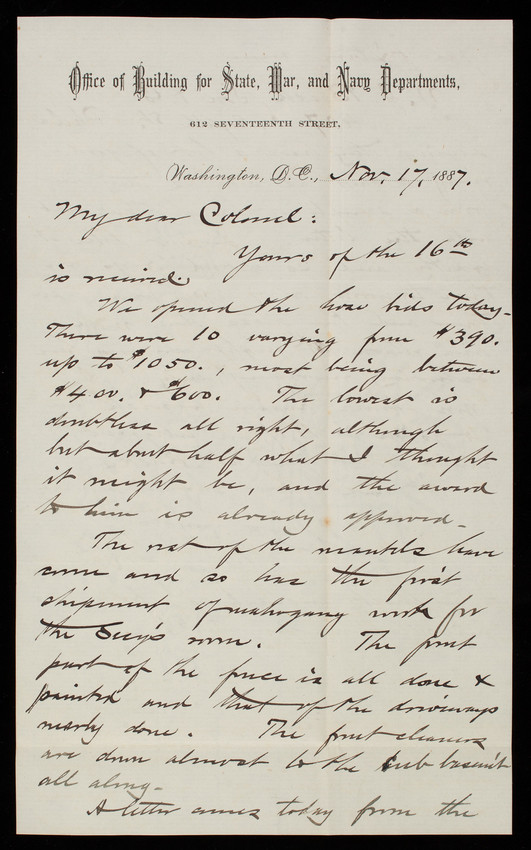 Office of Building for State, War, and Navy Departments,
612 SEVENTEENTH STREET.
Washington, D.C., Nov. 17, 1887.
My dear Colonel:
Yours of the 16th
is received.
We opened the hose bids today.
There were 10 varying from $390.
up to $1050., most being between
$400. & $600. The lowest is
doubtless all right, although
but about half what I thought
it might be, and the award
to him is already approved.
The rest of the mantels have
come and so has the first
shipment of mahogany work for
the Secy's room. The front
part of the fence is all done &
painted and that of the driveways
nearly done. The front cleaners
are down almost to the sub basem't
all along.
A letter comes today from the